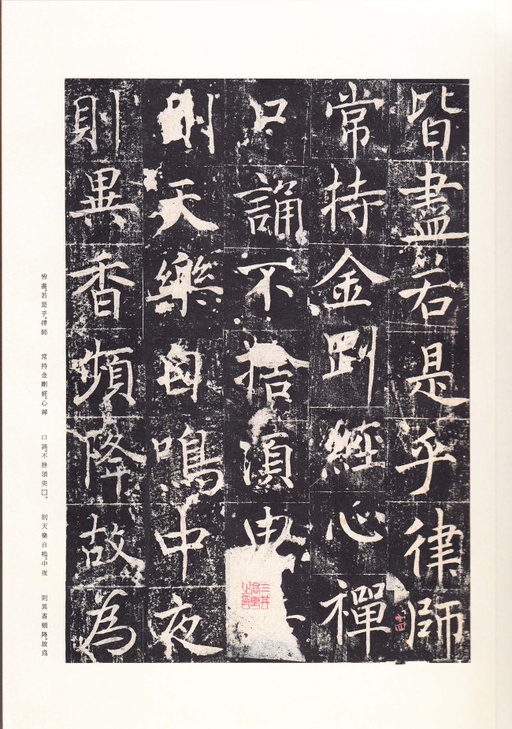 皆盡若是乎律師
常持金剛經心禪
口誦不捨須臾
則天樂自鳴中夜
則異香頻降故為
皆盡。若是乎。律師　常持金剛經。心禪　口誦。不捨須臾□。　則天樂自鳴。中夜　則異香頻降。故爲